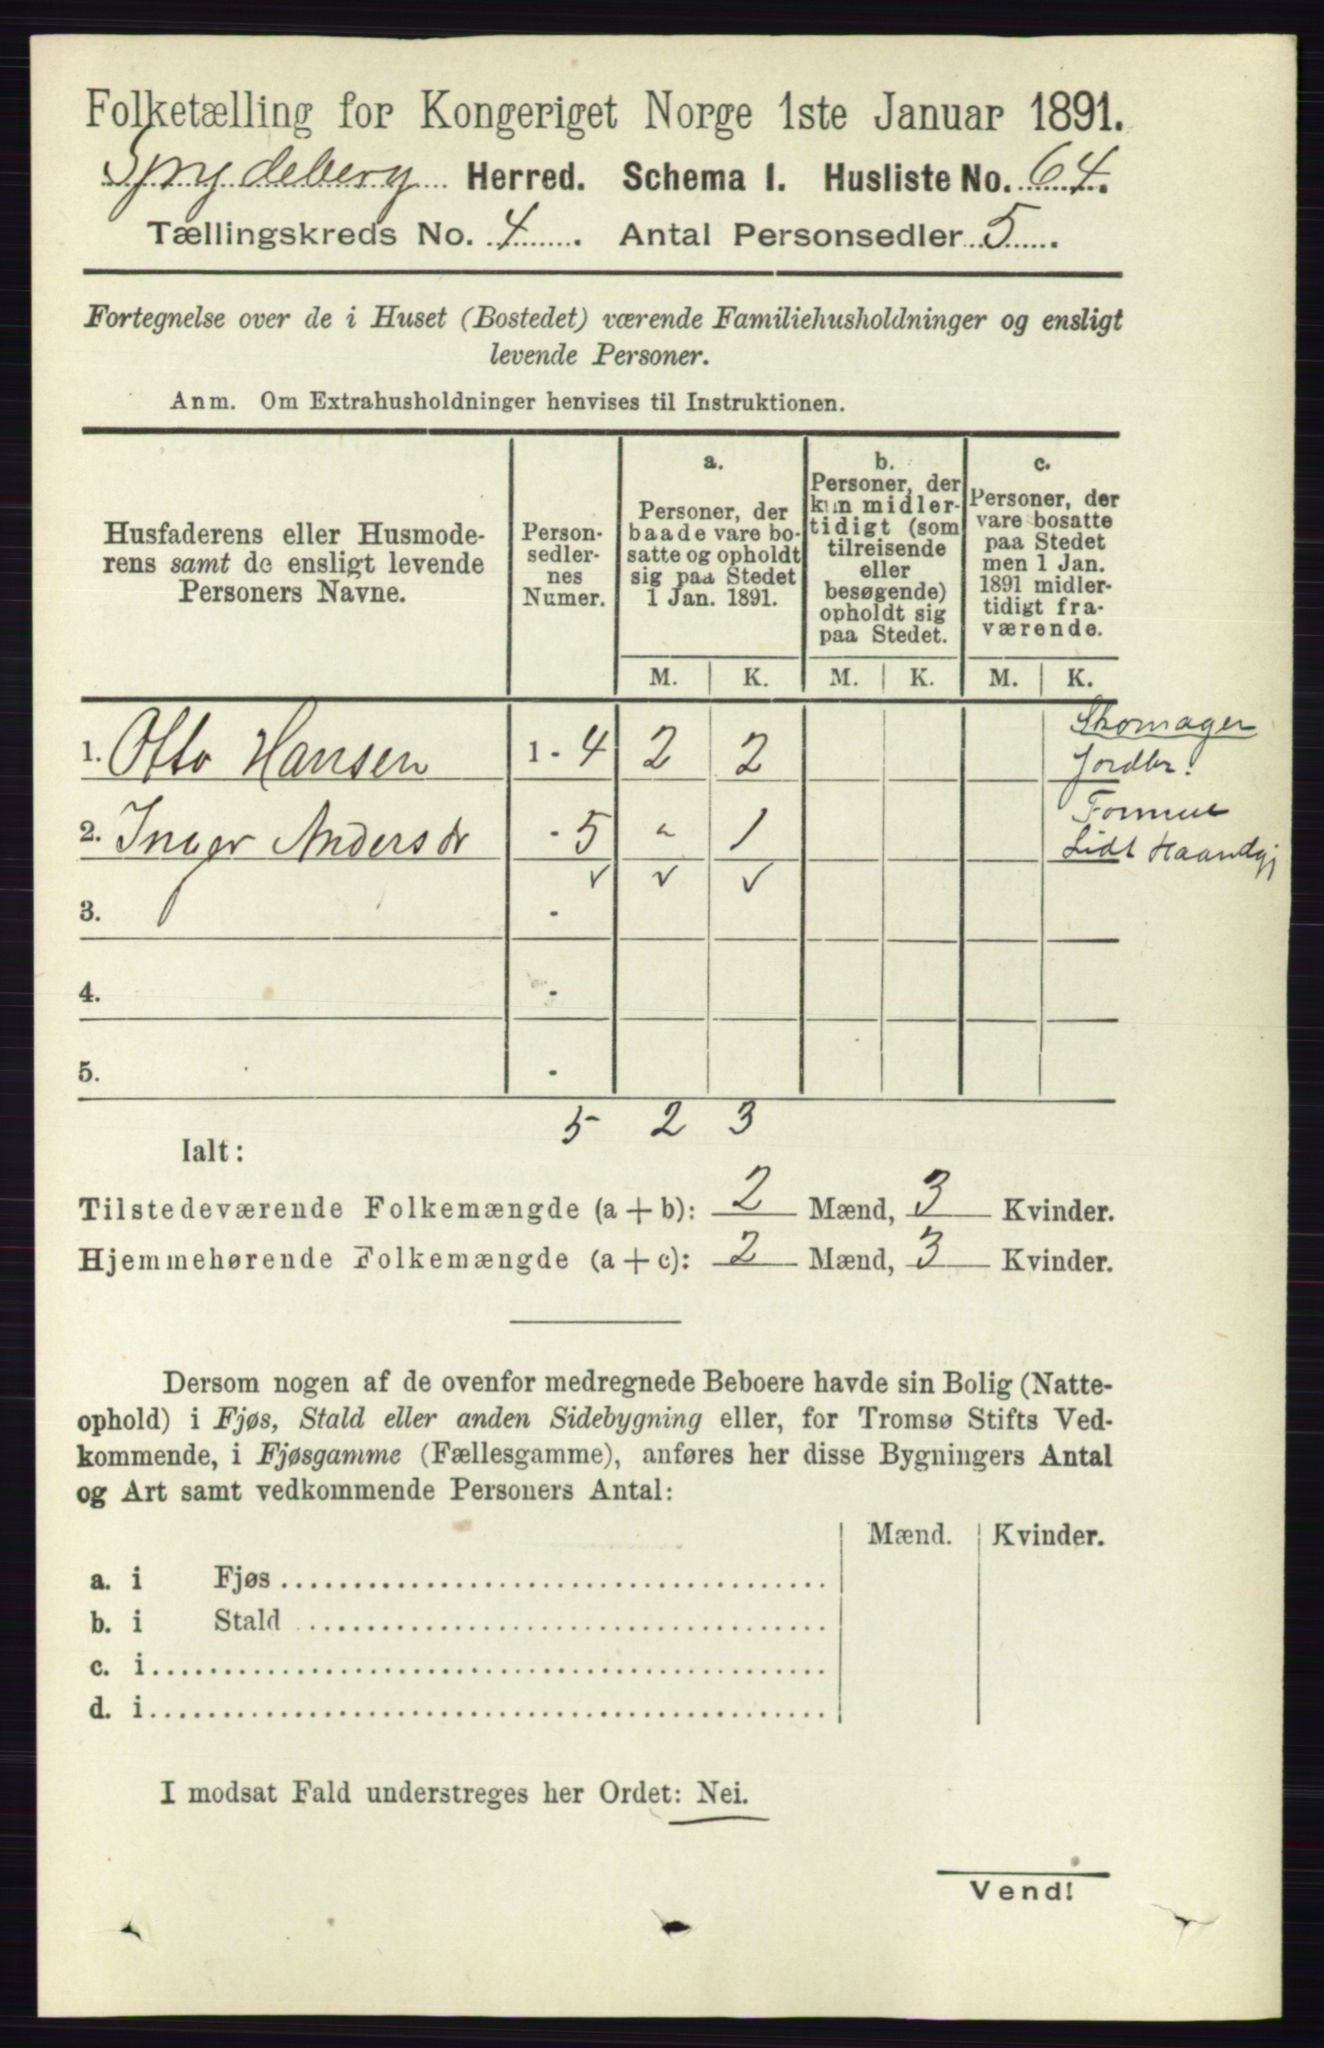 Folketælling for Kongeriget Norge 1ste Januar 1891.
Spydeberg Herred. Schema I. Husliste No. 64.
Tællingskreds No. 4. Antal Personsedler 5.
Fortegnelse over de i Huset (Bostedet) værende Familiehusholdninger og ensligt
levende Personer.
Anm. Om Extrahusholdninger henvises til Instruktionen.
Husfaderens eller Husmode-
rens samt de ensligt levende
Personers Navne.
Person-
sedler-
nes
Numer.
a.
Personer, der
baade vare bo-
satte og opholdt
sig paa Stedet
1 Jan. 1891.
b.
Personer, der
kun midler-
tidigt (som
tilreisende
eller
besøgende)
opholdt sig
paa Stedet.
c.
Personer, der
vare bosatte
paa Stedet
men 1 Jan.
1891 midler-
tidigt fra-
værende.
M. K. M. K. M. K.
1. Otto Hansen 1 - 4 2 2 Skomager
Jordbr.
2. Inger Andersdr - 5 " 1 Formue
Lidt Haandgj
3. -
4. -
5. -
5 2 3
Ialt:
Tilstedeværende Folkemængde (a + b): 2 Mænd, 3 Kvinder.
Hjemmehørende Folkemængde (a + c): 2 Mænd, 3 Kvinder.
Dersom nogen af de ovenfor medregnede Beboere havde sin Bolig (Natte-
ophold) i Fjøs, Stald eller anden Sidebygning eller, for Tromsø Stifts Ved-
kommende, i Fjøsgamme (Fællesgamme), anføres her disse Bygningers Antal
og Art samt vedkommende Personers Antal:
Mænd. Kvinder.
a. i Fjøs
b. i Stald
c. i
d. i
I modsat Fald understreges her Ordet: Nei.
Vend!